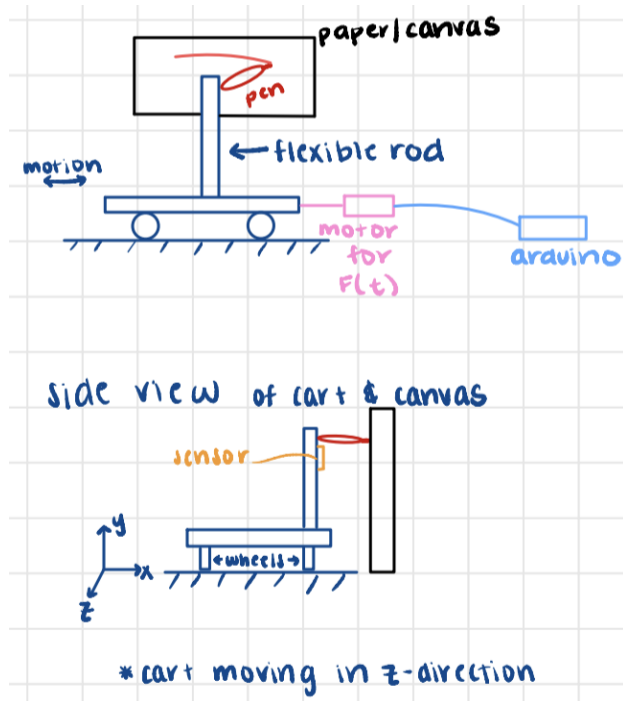 paper/canvas
pen
flexible rod
motion
motor
for
F(t)
arduino
side view of cart & canvas
sensor
wheels
y
x
z
*cart moving in z-direction